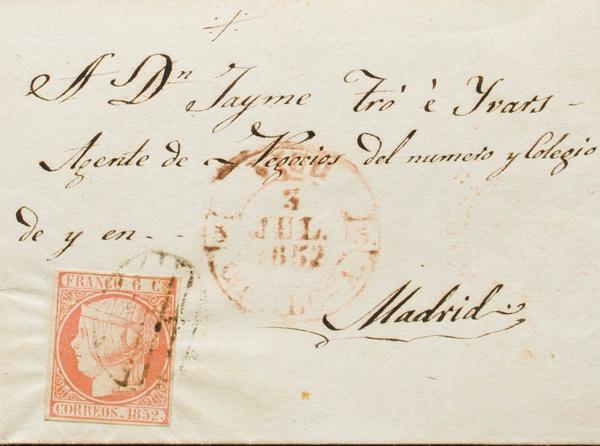 A Dn Jayme Tró è Yvars -
Agente de Negocios del numero y Colegio
de y en - -
Madrid
3
JUL.
1852
FRANCO 6 Cs
CORREOS. 1852.